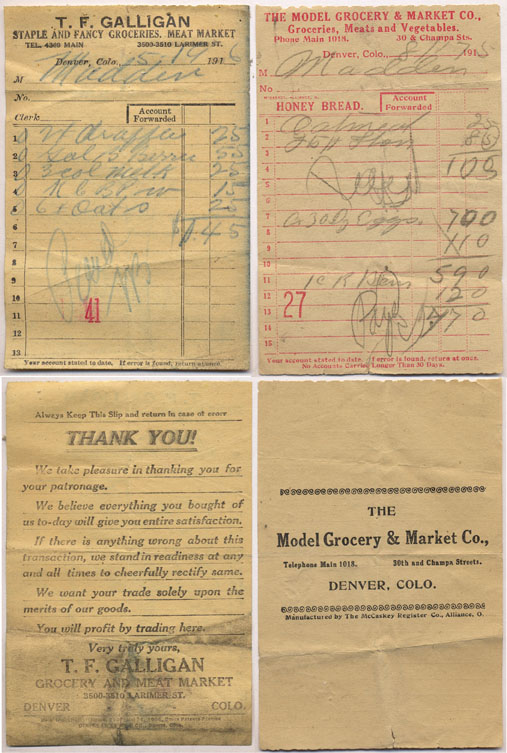 T. F. GALLIGAN
STAPLE AND FANCY GROCERIES. MEAT MARKET
TEL. 4380 MAIN 3509-3510 LARIMER ST.
Denver, Colo., 5/14 1916
M Madden
No.
Clerk
Account Forwarded
1 25
2 Gal 55
3 3 col milk 25
4 15
5 6 + Oats 25
6
7 1.45
8
9 Paid
10
11 41
12
13
Your account stated to date. If error is found, return at once.
THE MODEL GROCERY & MARKET CO.,
Groceries, Meats and Vegetables.
Phone Main 1018. 30 & Champa Sts.
Denver, Colo., 1915
M Madden
No
HONEY BREAD.
Account Forwarded
1 Oatmeal 25
2
3 105
4
5
6
7 Eggs 700
8 110
9
10
11 590
12 27 120
13 470
14
15
Your account stated to date. If error is found, return at once.
No Accounts Carried Longer Than 30 Days.
Always Keep This Slip and return in case of error
THANK YOU!
We take pleasure in thanking you for
your patronage.
We believe everything you bought of
us to-day will give you entire satisfaction.
If there is anything wrong about this
transaction, we stand in readiness at any
and all times to cheerfully rectify same.
We want your trade solely upon the
merits of our goods.
You will profit by trading here.
Very truly yours,
T. F. GALLIGAN
GROCERY AND MEAT MARKET
3509-3510 LARIMER ST.
DENVER COLO.
THE
Model Grocery & Market Co.,
Telephone Main 1018. 30th and Champa Streets.
DENVER, COLO.
Manufactured by The McCaskey Register Co., Alliance, O.